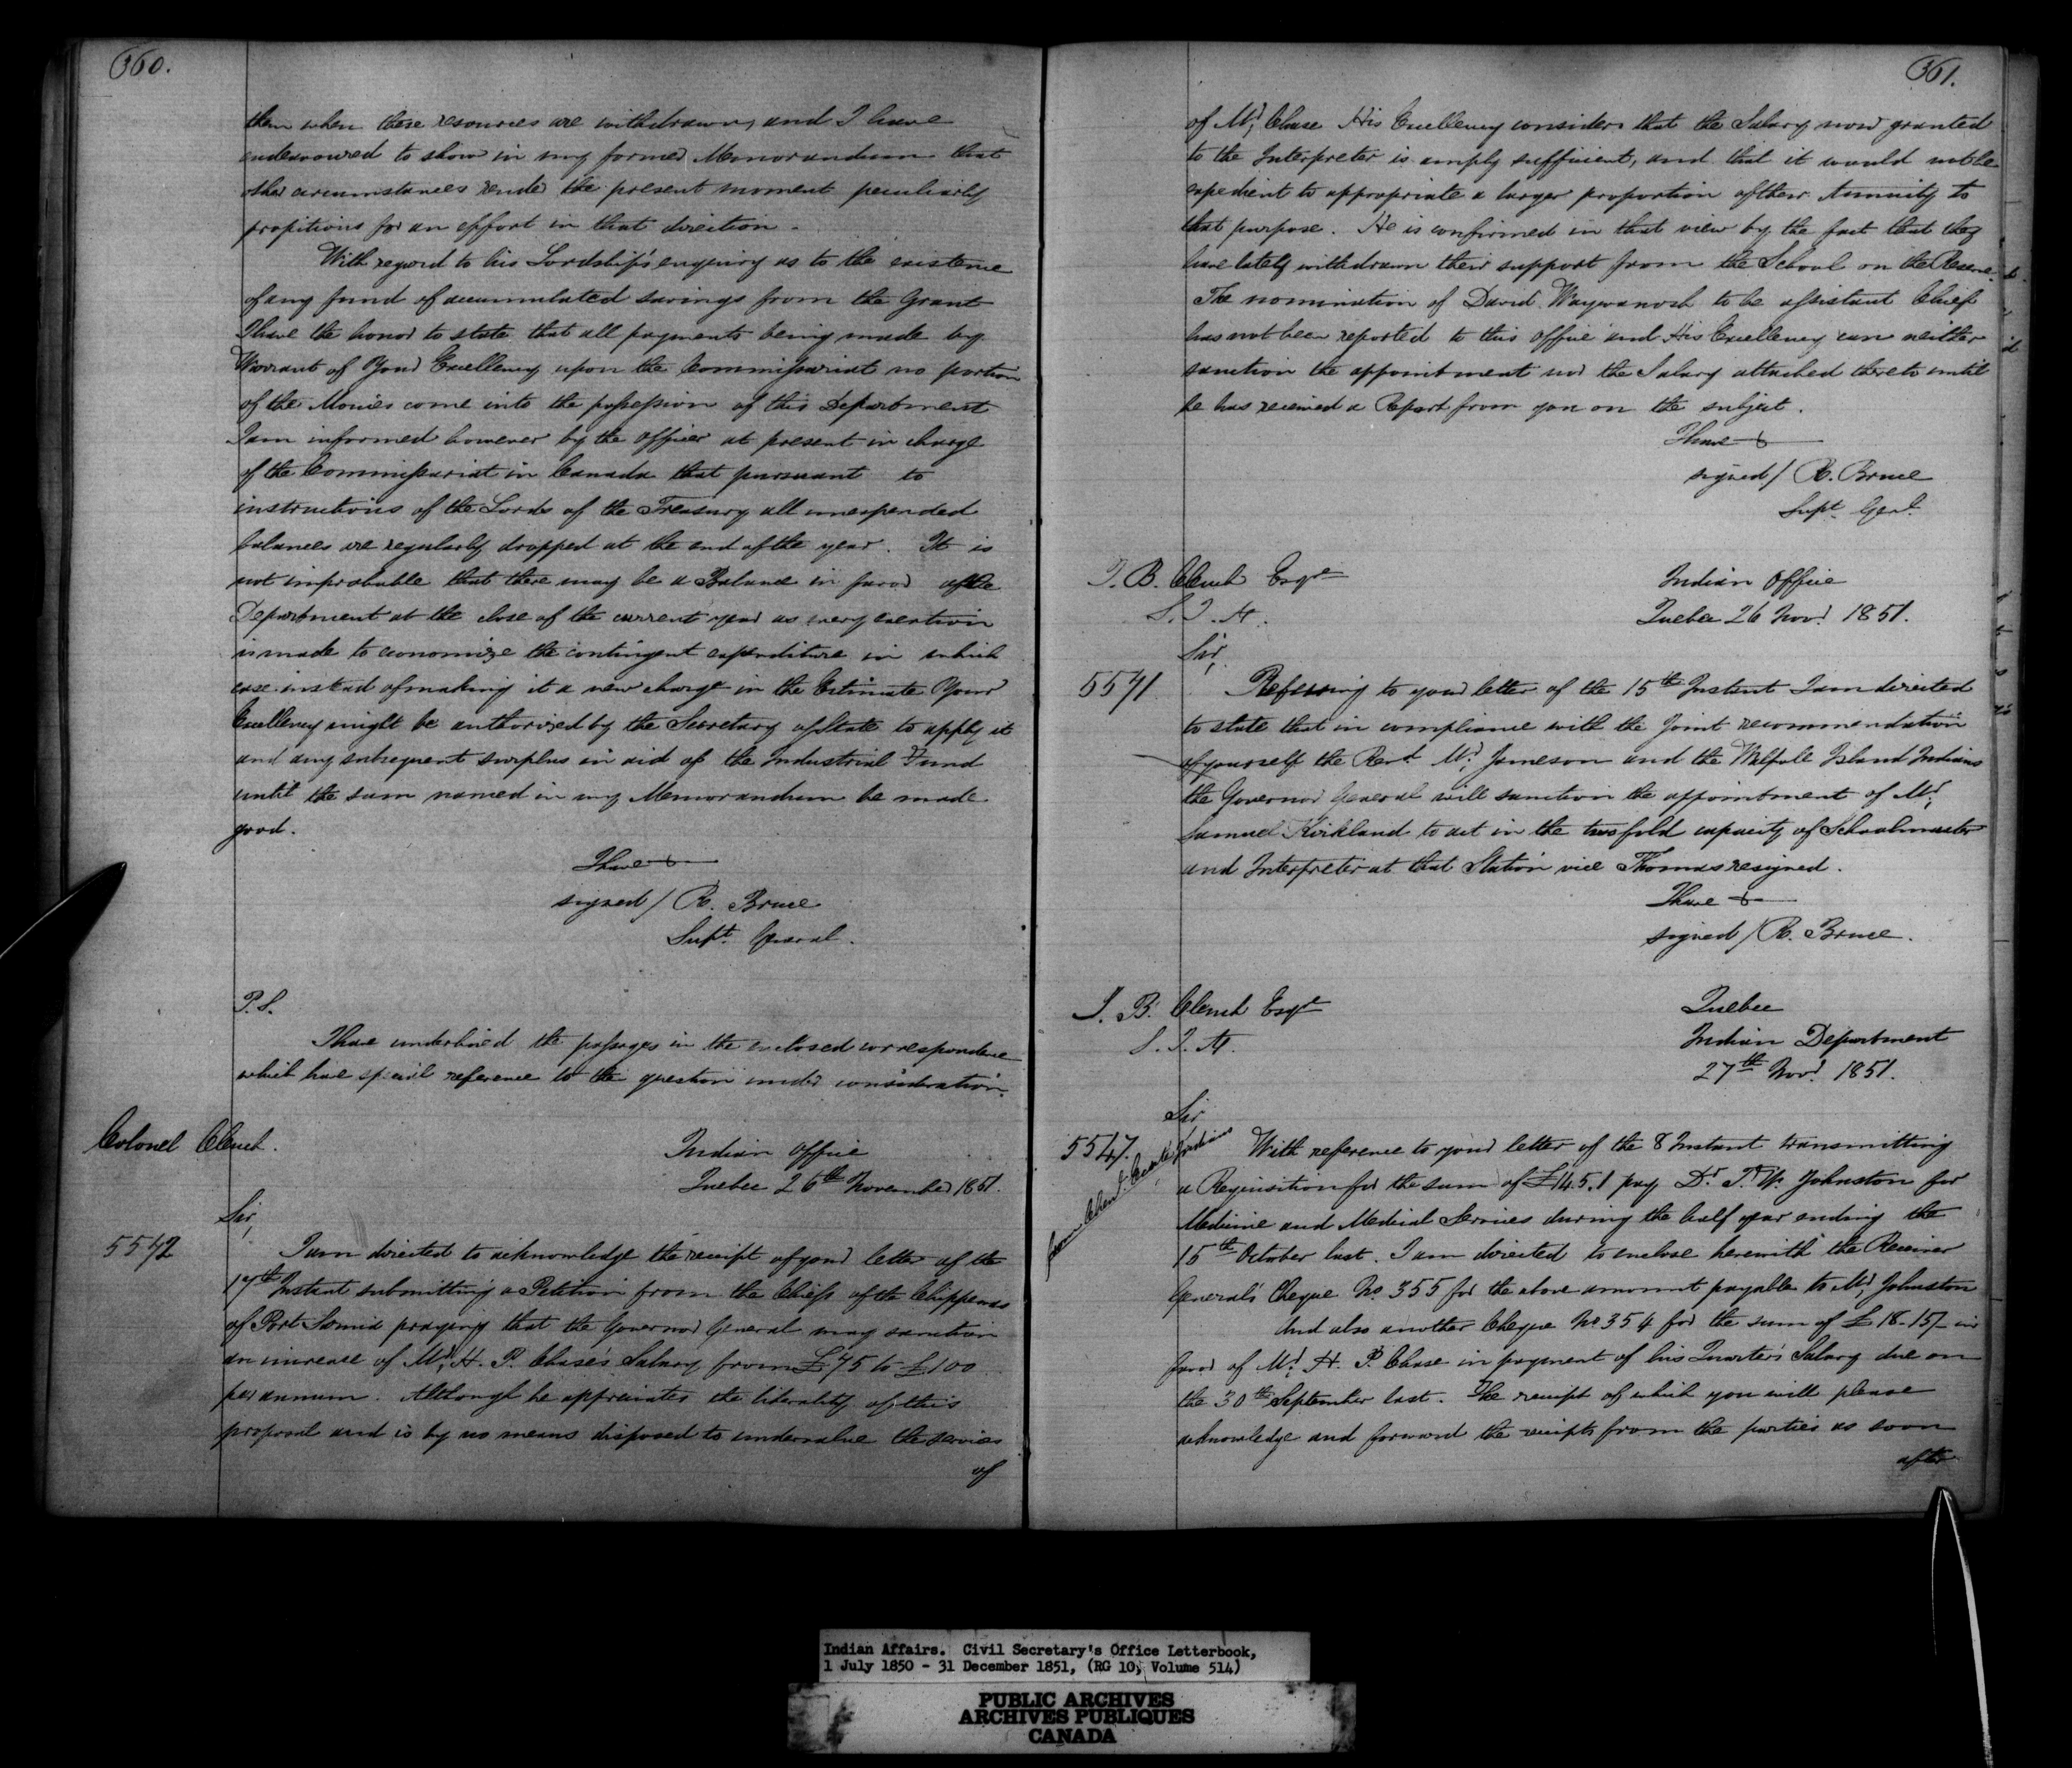 360.
them when these resources are withdrawn, and I have
endeavoured to show in my former Memorandum that
other circumstances render the present moment peculiarly
propitious for an effort in that direction -
With regard to his Lordship's enquiry as to the existence
of any fund of accumulated savings from the Grant
I have the honor to state that all payments being made by
Warrant of Your Excellency upon the Commissariat no portion
of the Monies come into the possession of this Department
I am informed however by the Officer at present in charge
of the Commissariat in Canada that pursuant to
instructions of the Lords of the Treasury all unexpended
balances are regularly dropped at the end of the year. It is
not improbable that there may be a Balance in favor of the
Department at the close of the current year as every exertion
is made to economize the contingent expenditure in which
case instead of making it a new charge in the Estimate Your
Excellency might be authorized by the Secretary of State to apply it
and any subsequent surplus in aid of the Industrial Fund
until the sum named in my Memorandum be made
good.
I have &
signed / R. Bruce
Supt. General.
P.S.
I have underlined the passages in the enclosed correspondence
which have special reference to the question under consideration.
Colonel Clench.
Indian Office
Quebec 26th November 1851.
Sir,
5572
I am directed to acknowledge the receipt of your letter of the
17th Instant submitting a Petition from the Chiefs of the Chippewas
of Port Sarnia praying that the Governor General may sanction
an increase of Mr. H. P. Chase's Salary from £75 to £100
per annum. Although he appreciates the liberality of this
proposal and is by no means disposed to undervalue the services
of
361.
of Mr. Chase His Excellency considers that the Salary now granted
to the Interpreter is amply sufficient, and that it would not be
expedient to appropriate a larger proportion of their Annuity to
that purpose. He is confirmed in that view by the fact that they
have lately withdrawn their support from the School on the Reserve.
The nomination of David Waywanosh to be assistant Chief
has not been reported to this Office and His Excellency can neither
sanction the appointment nor the Salary attached thereto until
he has received a Report from you on the subject.
I have &
signed / R. Bruce
Supt. Genl.
J. B. Clench Esqre
S. I. A.
Indian Office
Quebec 26 Novr. 1851.
Sir,
5571.
Referring to your letter of the 15th Instant I am directed
to state that in compliance with the joint recommendation
of yourself the Revd. Mr. Jameson and the Walpole Island Indians
the Governor General will sanction the appointment of Mr.
Samuel Kirkland to act in the twofold capacity of Schoolmaster
and Interpreter at that Station vice Thomas resigned.
I have &
signed / R. Bruce.
J. B. Clench Esqr
S. I. A.
Quebec
Indian Department
27th Novr. 1851.
Sir
5547.
With reference to your letter of the 8 Instant transmitting
a Requisition for the sum of £14.5.1 pay Dr. T. W. Johnston for
Medicine and Medical Services during the half year ending the
15th October last. I am directed to enclose herewith the Receiver
General's Cheque No. 355 for the above amount payable to Mr. Johnston
And also another Cheque No 354 for the sum of £18-15/- in
favor of Mr. H. P. Chase in payment of his Quarter's Salary due on
the 30th September last. The receipt of which you will please
acknowledge and forward the receipts from the parties as soon
after
Indian Affairs. Civil Secretary's Office Letterbook,
1 July 1850 - 31 December 1851, (RG 10, Volume 514)
PUBLIC ARCHIVES
ARCHIVES PUBLIQUES
CANADA